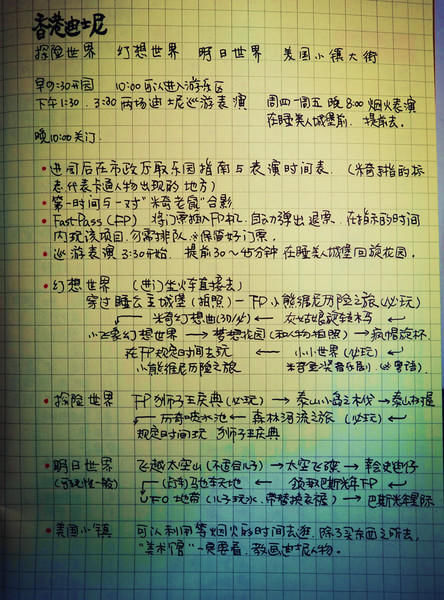 香港迪士尼
探险世界 幻想世界 明日世界 美国小镇大街
早9:30开园 10:00可以进入游乐区
下午1:30. 3:30 两场迪士尼巡游表演 周四—周五 晚8:00 烟火表演
在睡美人城堡前. 提前去。
晚10:00关门.
• 进园后在市政厅取乐园指南与表演时间表. (米奇手指的标
志代表卡通人物出现的地方)
• 第一时间与一对"米奇老鼠"合影
• FastPass (FP) 将门票插入FP机. 自动弹出退票. 在指示的时间
内玩该项目. 勿需排队. ※保留好门票.
• 巡游表演 3:30开始. 提前30~45分钟 在睡美人城堡回旋花园。
• 幻想世界 (进门坐火车直接去)
穿过睡公主城堡 (拍照) — FP小熊维尼历险之旅 (必玩)
米奇幻想曲(3D/必) ← 灰姑娘旋转木马
小飞象幻想世界 → 梦想花园 (和人物拍照) → 疯帽旋杯.
在FP规定时间去玩 ← 小小世界 (必玩)
小熊维尼历险之旅 米奇金奖音乐剧. 必. 粤语.
• 探险世界 FP 狮子王庆典 (必玩) → 泰山小岛之木伐 → 泰山树屋
历奇喷水池 ← 森林河流之旅 (必玩)
规定时间玩 狮子王庆典
• 明日世界 飞越太空山 (不宜儿子) → 太空飞碟 →
(可玩性一般) ← 领取巴斯光年FP
UFO 地带 (儿子玩水. 带替换衣裤) → 巴斯光年星际
• 美国小镇 可以利用等烟火的时间去逛. 除了买东西之所去,
"美术馆"一定要看. 教画迪尼人物。